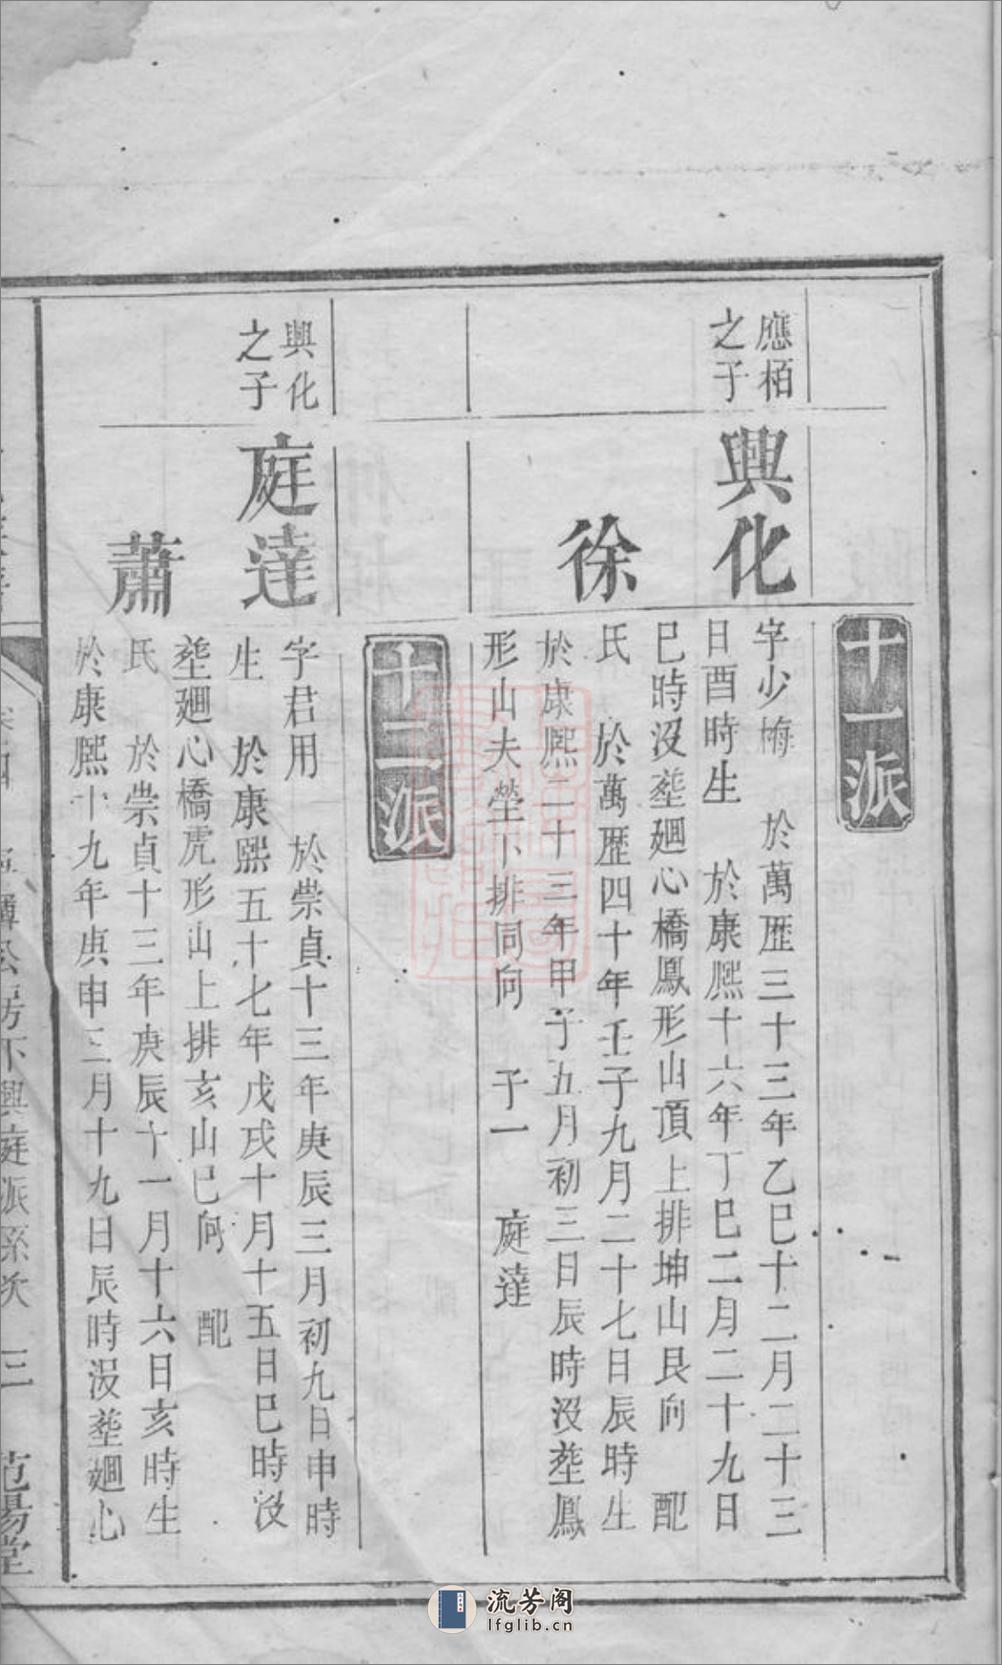 十一派
應栢
之子
興化
徐
字少梅　於萬歷三十三年乙巳十二月二十三
日酉時生　於康熙十六年丁巳二月二十九日
巳時没塟廻心橋鳳形山頂上排坤山艮向　配
氏　於萬歷四十年壬子九月二十七日辰時生
於康熙二十三年甲子五月初三日辰時没塟鳳
形山夫塋下排同向　子一　庭達
十二派
興化
之子
庭達
蕭
字君用　於崇貞十三年庚辰三月初九日申時
生　於康熙五十七年戊戌十月十五日巳時没
塟廻心橋虎形山上排亥山巳向　配
氏　於崇貞十三年庚辰十一月十六日亥時生
於康熙十九年庚申三月十九日辰時没塟廻心
公房下興庭派系次　三　范陽堂
流芳阁
lfglib.cn